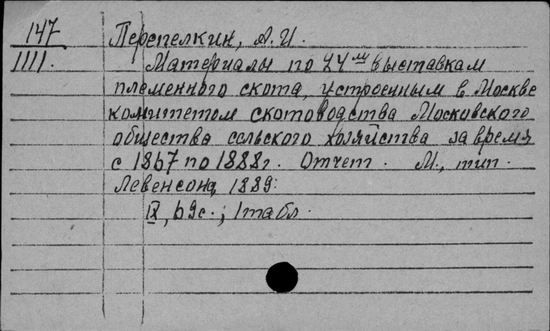 147 Перепелкин, А.И.
1111. Материалы по 24 м выставкам
племенного скота, устроенным в Москве
комитетом скотоводства Московского
общества сельского хозяйства за время
с 1867 по 1888 г. Отчет. М., тип.
Левенсона, 1889.
IX, 69 с.; 1 табл.